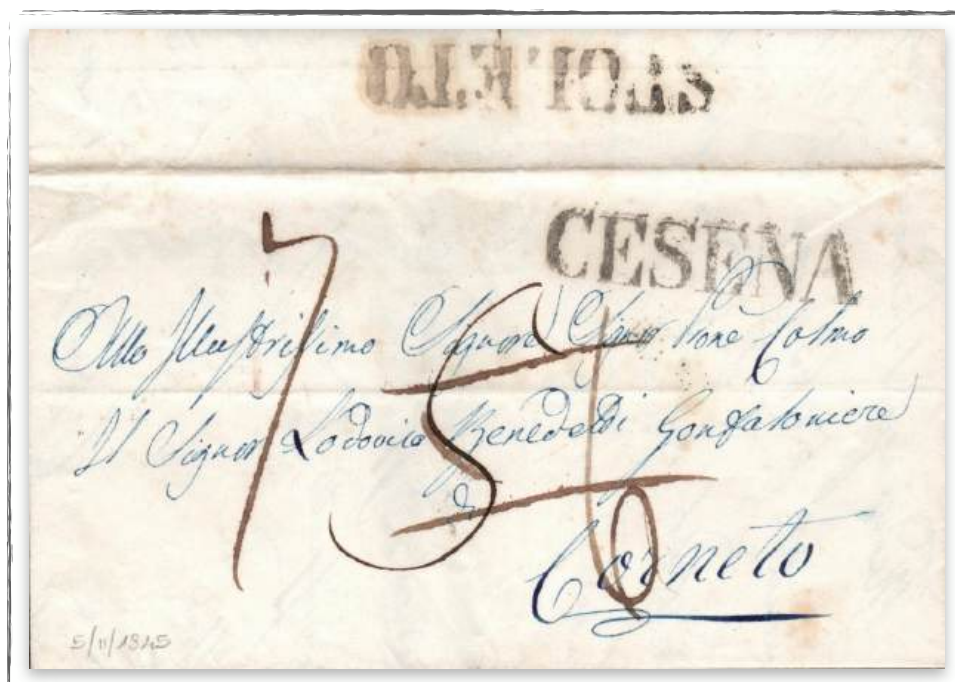 CESENA
Allo Illustrissimo Signore Signor Prone Colmo
Il Signor Lodovico Benedetti Gonfaloniere
Corneto
7 56
5/11/1845